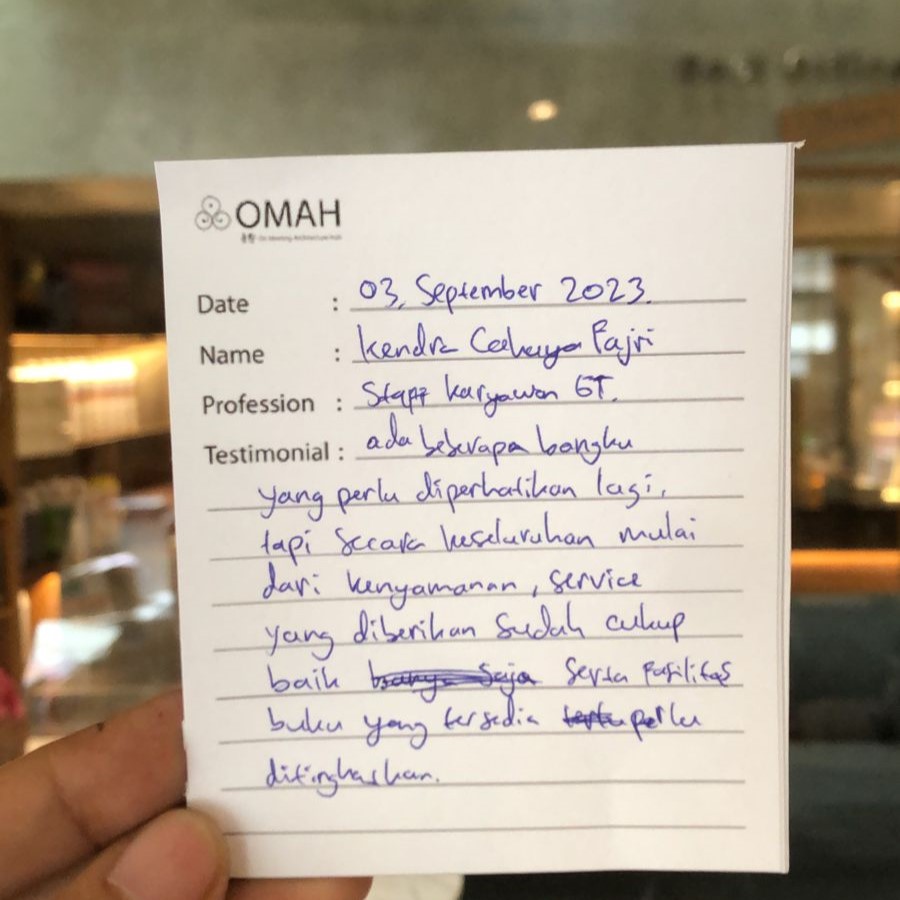 OMAH
Date : 03, September 2023.
Name : Kendra Cahaya Fajri
Profession : Staff Karyawan GT.
Testimonial : ada beberapa bangku
yang perlu diperhatikan lagi,
tapi secara keseluruhan mulai
dari kenyamanan, service
yang diberikan sudah cukup
baik hanya saja serta fasilitas
buku yang tersedia perlu
ditingkaskan.